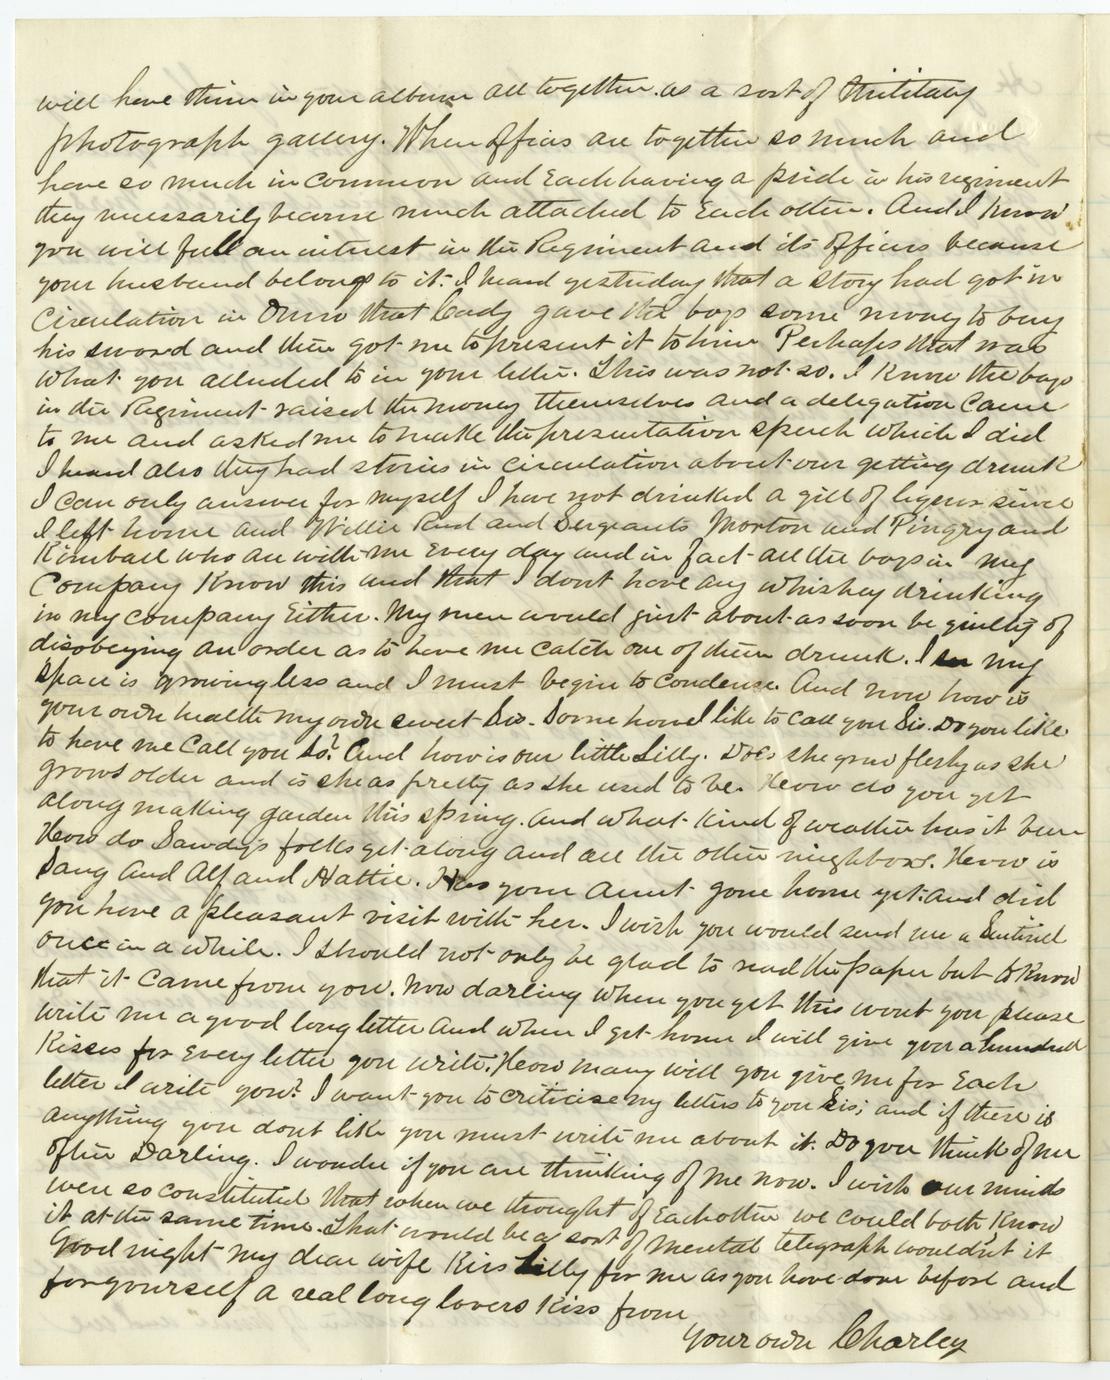 will have them in your album all together as a sort of Military
photograph gallery. When officers are together so much and
have so much in common and each having a pride in his regiment
they necessarily become much attached to each other. And I know
you will feel an interest in the Regiment and its officers because
your husband belongs to it. I heard yesterday that a story had got in
circulation in that Cady gave the boys some money to buy
his sword and then got me to present it to him Perhaps that was
what you alluded to in your letter. This was not so. I know the boys
in the Regiment raised the money themselves and a delegation came
to me and asked me to make the presentation speech which I did
I heard also they had stories in circulation about our getting drunk
I can only answer for myself I have not drinked a gill of liquor since
I left home and Willie and Sergeants Morton and Pingry and
Kimball who are with me every day and in fact all the boys in my
Company know this and that I dont have any whiskey drinking
in my company either. My men would just about as soon be guilty of
disobeying an order as to have me catch one of them drunk. I my
space is growing less and I must begin to condense. And now how is
your own health my own sweet Sis. Some how I like to call you Sis. Do you like
to have me call you so? And how is our little Lilly. Does she grow fleshy as she
grows older and is she as pretty as she used to be. How do you get
along making garden this spring. And what kind of weather has it been
How do Sawdys folks get along and all the other neighbors. How is
and Alf and Hattie. Has your aunt gone home yet and did
you have a pleasant visit with her. I wish you would send me a Sentinel
once in a while. I should not only be glad to read the paper but to know
that it came from you. Now darling when you get this wont you please
write me a good long letter and when I get home I will give you a hundred
kisses for every letter you write. How many will you give me for each
letter I write you? I want you to criticise my letters to you Sis; and if there is
anything you dont like you must write me about it. Do you think of me
often Darling. I wonder if you are thinking of me now. I wish our minds
were so constituted that when we thought of each other we could both know
it at the same time. That would be a sort of mental telegraph wouldn't it
Good night my dear wife Kiss Lilly for me as you have done before and
for yourself a real long lovers kiss from
your own Charley